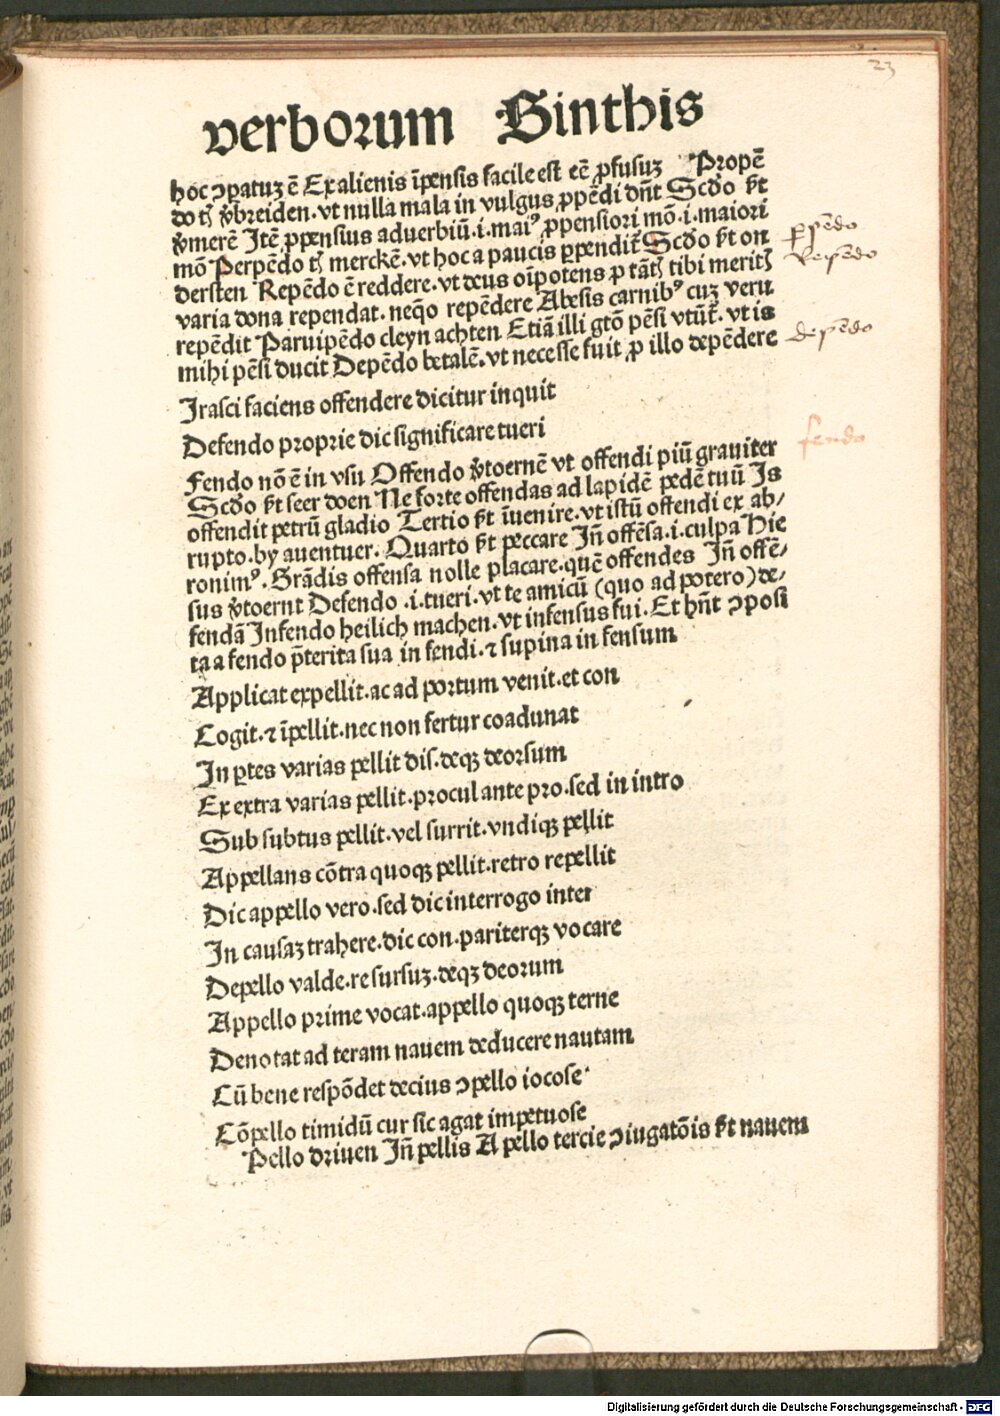 23
verborum Sinthis
hoc ꝯparatuꝫ ē Ex alienis īpensis facile est eē ꝓfusuꝫ Propē
do tꝫ v̄breiden. vt nulla mala in vulgus ꝓpēdi dn̄t Scd̄o st̄
v̄merē Itē ꝓpensius aduerbiū .i. maiꝰ ꝓpensiori mō .i. maiori
mō Perpēdo tꝫ merckē. vt hoc a paucis ꝑpendit̄ Scd̄o st̄ on
dersten Repēdo ē reddere. vt deus oīpotens ꝓ tātꝫ tibi meritꝫ
varia dona rependat. neq̄o repēdere Abesis carnibꝰ cuꝫ veru
repēdit Paruipēdo cleyn achten Etiā illi gtō pēsi vtūt̄. vt is
mihi pēsi ducit Depēdo betalē. vt necesse fuit ꝓ illo depēdere
Irasci faciens offendere dicitur inquit
Defendo proprie dic significare tueri
Fendo nō ē in vsu Offendo v̄toernē vt offendi piū grauiter
Scd̄o st̄ seer doen Ne forte offendas ad lapidē pedē tuū Is
offendit petrū gladio Tertio st̄ īuenire. vt istū offendi ex ab/
rupto. by auentuer. Quarto st̄ peccare Iñ offēsa .i. culpa Hie
ronimꝰ. Grādis offensa nolle placare. quē offendes Iñ offē/
sus v̄toernt Defendo .i. tueri. vt te amicū (quo ad potero) de/
fendā Infendo heilich machen. vt infensus fui. Et hn̄t ꝯposi
ta a fendo p̄terita sua in fendi. ⁊ supina in fensum
Applicat expellit. ac ad portum venit. et con
Cogit. ⁊ īpellit. nec non fertur coadunat
In ꝑtes varias pellit dis. deqꝫ deorsum
Ex extra varias pellit. procul ante pro. sed in intro
Sub subtus pellit. vel surrit. vndiqꝫ pellit
Appellans cōtra quoqꝫ pellit. retro repellit
Dic appello vero. sed dic interrogo inter
In causaꝫ trahere. dic con. pariterqꝫ vocare
Depello valde. re sursuꝫ. deqꝫ deorum
Appello prime vocat. appello quoqꝫ terne
Denotat ad teram nauem deducere nautam
Cū bene respōdet decius ꝯpello iocose
Cōpello timidū cur sic agat impetuose
Pello driuen Iñ pellis A pello tercie ꝯiugatōis st̄ nauem
ꝑpēdo
Repēdo
depēdo
fendo
Digitalisierung gefördert durch die Deutsche Forschungsgemeinschaft - DFG